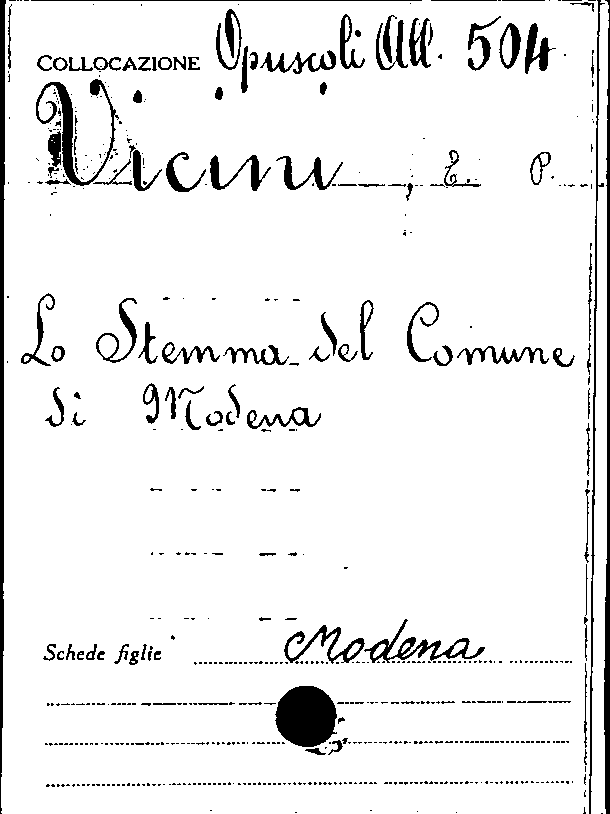 COLLOCAZIONE Opuscoli All. 504
Vicini, E. P.
Lo Stemma del Comune
di Modena
Schede figlie Modena